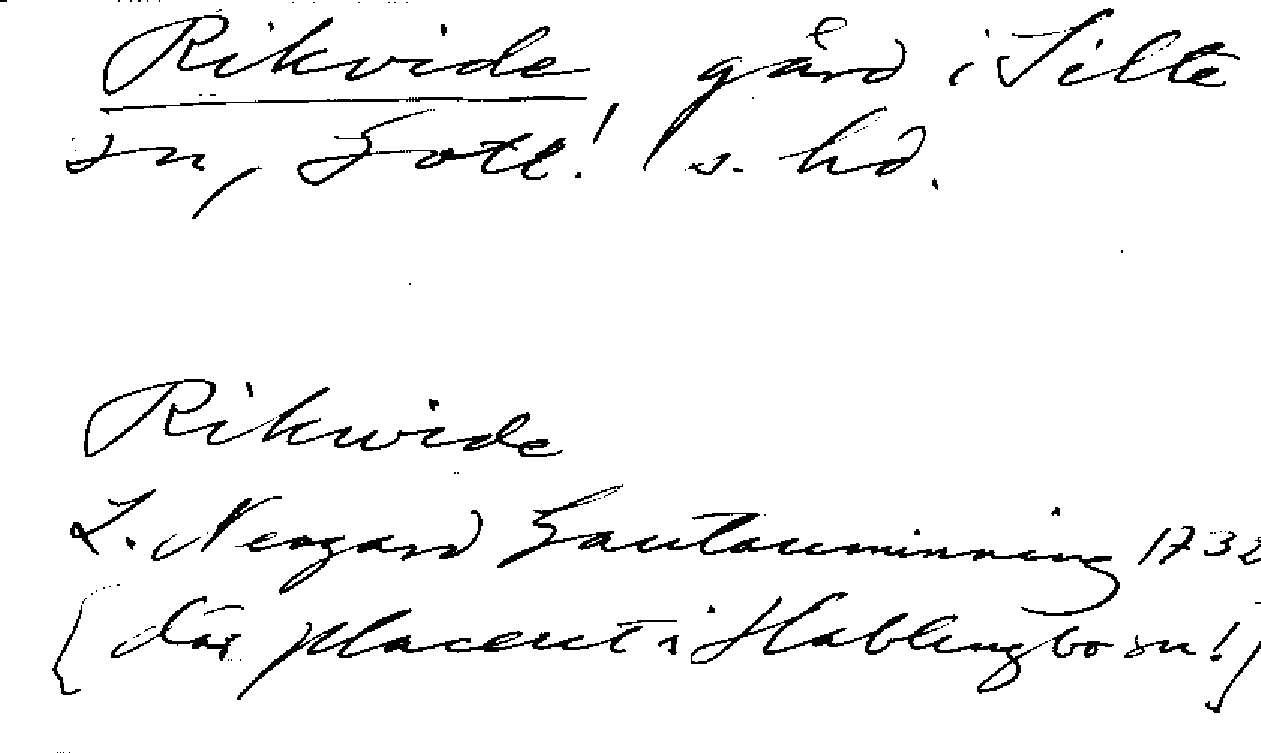 Rikvide gård i Silte
sn, Gotl! s. hd.
Rikwide
L. Neogard Gautauminning 1732
[där placerat i Hablingbo sn!]